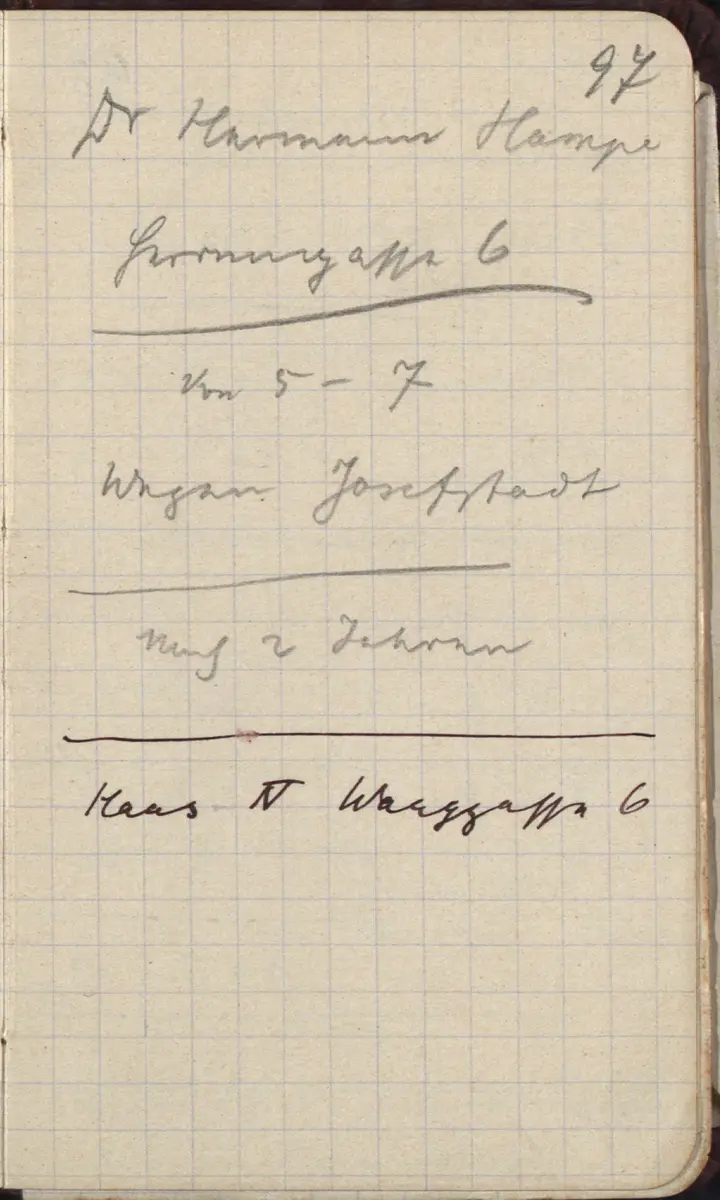 97
Dr Hermann Hampe
Herrengasse 6
Von 5 – 7
Wegen Josefstadt
Nach 2 Jahren
Haas IV Waaggasse 6